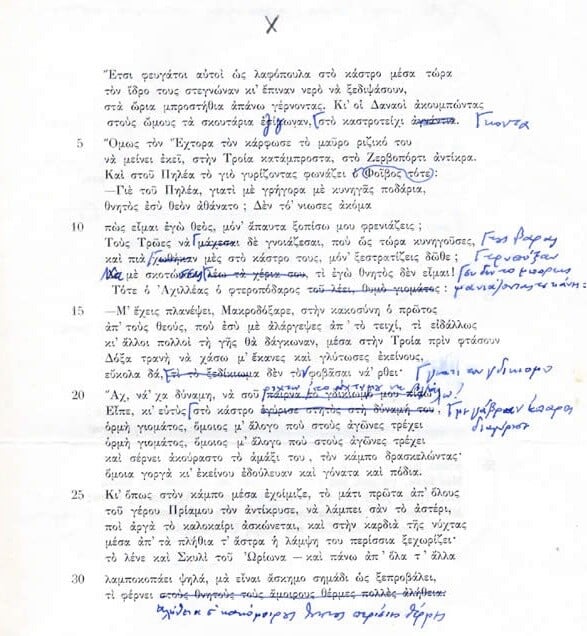 X
Ἔτσι φευγάτοι αὐτοὶ ὡς λαφόπουλα στὸ κάστρο μέσα τώρα
τὸν ἵδρο τους στεγνώναν κι' ἔπιναν νερὸ νὰ ξεδιψάσουν,
στὰ ὥρια μπροστήθια ἀπάνω γέρνοντας. Κι' οἱ Δαναοὶ ἀκουμπώντας
στοὺς ὤμους τὰ σκουτάρια ἐσίγωναν, στὸ καστροτείχι ἀγνάντια.
5 Ὅμως τὸν Ἔχτορα τὸν κάρφωσε τὸ μαῦρο ριζικό του
νὰ μείνει ἐκεῖ, στὴν Τροία κατάμπροστα, στὸ Ζερβοπόρτι ἀντίκρα.
Καὶ στοῦ Πηλέα τὸ γιὸ γυρίζοντας φωνάζει ὁ Φοῖβος τότε:
—Γιὲ τοῦ Πηλέα, γιατὶ μὲ γρήγορα μὲ κυνηγᾶς ποδάρια,
θνητὸς ἐσὺ θεὸν ἀθάνατο; Δὲν τό' νιωσες ἀκόμα
10 πὼς εἶμαι ἐγὼ θεός, μόν' ἄπαυτα ξοπίσω μου φρενιάζεις;
Τοὺς Τρῶες νὰ μάχεσαι δὲ γνοιάζεσαι, ποὺ ὣς τώρα κυνηγοῦσες,
καὶ πιὰ χωθῆκαν μὲς στὸ κάστρο τους, μόν' ξεστρατίζεις δῶθε;
Νὰ μὲ σκοτώσεις λέω τὰ χέρια σου, τὶ ἐγὼ θνητὸς δὲν εἶμαι!
Τότε ὁ Ἀχιλλέας ὁ φτεροπόδαρος τοῦ λέει, θυμὸ γιομάτος:
15 —Μ' ἔχεις πλανέψει, Μακροδόξαρε, στὴν κακοσύνη ὁ πρῶτος
ἀπ' τοὺς θεούς, ποὺ ἐσὺ μὲ ἀλάργεψες ἀπ' τὸ τειχί, τὶ εἰδάλλως
κι' ἄλλοι πολλοὶ τὴ γῆς θὰ δάγκωναν, μέσα στὴν Τροία πρὶν φτάσουν
Δόξα τρανὴ νὰ χάσω μ' ἔκανες καὶ γλύτωσες ἐκείνους,
εὔκολα δά, τὶ τὸ ξεδίκιωμα δὲν τὸ φοβᾶσαι νά' ρθει·
20 Ἄχ, νά' χα δύναμη, νὰ σοῦ παίρνα
Εἶπε, κι' εὐτὺς στὸ κάστρο
ὁρμὴ γιομάτος, ὅμοιος μ' ἄλογο ποὺ στοὺς ἀγῶνες τρέχει
ὁρμὴ γιομάτος, ὅμοιος μ' ἄλογο ποὺ στοὺς ἀγῶνες τρέχει
καὶ σέρνει ἀκούραστο τὸ ἁμάξι του, τὸν κάμπο δρασκελώντας·
ὅμοια γοργὰ κι' ἐκείνου ἐδούλευαν καὶ γόνατα καὶ πόδια.
25 Κι' ὅπως στὸν κάμπο μέσα ἐχοίμιζε, τὸ μάτι πρῶτα ἀπ' ὅλους
τοῦ γέρου Πρίαμου τὸν ἀντίκρυσε, νὰ λάμπει σὰν τὸ ἀστέρι,
ποὺ ἀργὰ τὸ καλοκαίρι ἀσκώνεται, καὶ στὴν καρδιὰ τῆς νύχτας
μέσα ἀπ' τὰ πλήθια τ' ἄστρα ἡ λάμψη του περίσσια ξεχωρίζει·
τὸ λένε καὶ Σκυλὶ τοῦ Ὠρίωνα — καὶ πάνω ἀπ' ὅλα τ' ἄλλα
30 λαμποκοπάει ψηλά, μὰ εἶναι ἄσκημο σημάδι ὡς ξεπροβάλει,
τὶ φέρνει στοὺς θνητοὺς τοὺς ἄμοιρους θέρμες πολλὲς ἀλήθεια.